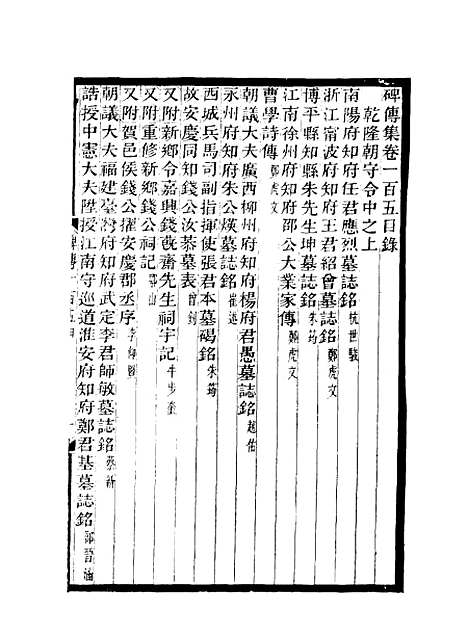 碑傳集卷一百五目錄
乾隆朝守令中之上
南陽府知府任君應烈墓誌銘 杭世駿
浙江甯波府知府王君紹曾墓誌銘 鄭虎文
博平縣知縣朱先生坤墓誌銘 朱筠
江南徐州府知府邵公大業家傳 鄭虎文
曹學詩傳 鄭虎文
朝議大夫廣西柳州府知府楊府君愚墓誌銘 趙佑
永州府知府朱公煐墓誌銘 崔述
西城兵馬司副指揮使張君本墓碣銘 朱筠
故安慶同知錢公汝恭墓表
又附新鄉令嘉興錢 齋先生祠宇記
又附重修新鄉錢公祠記
又附賀邑侯錢公擢安慶郡丞序
朝議大夫福建臺灣府知府武定李君師敏墓誌銘 蔡新
誥授中憲大夫陞授江南守巡道淮安府知府鄭君基墓誌銘